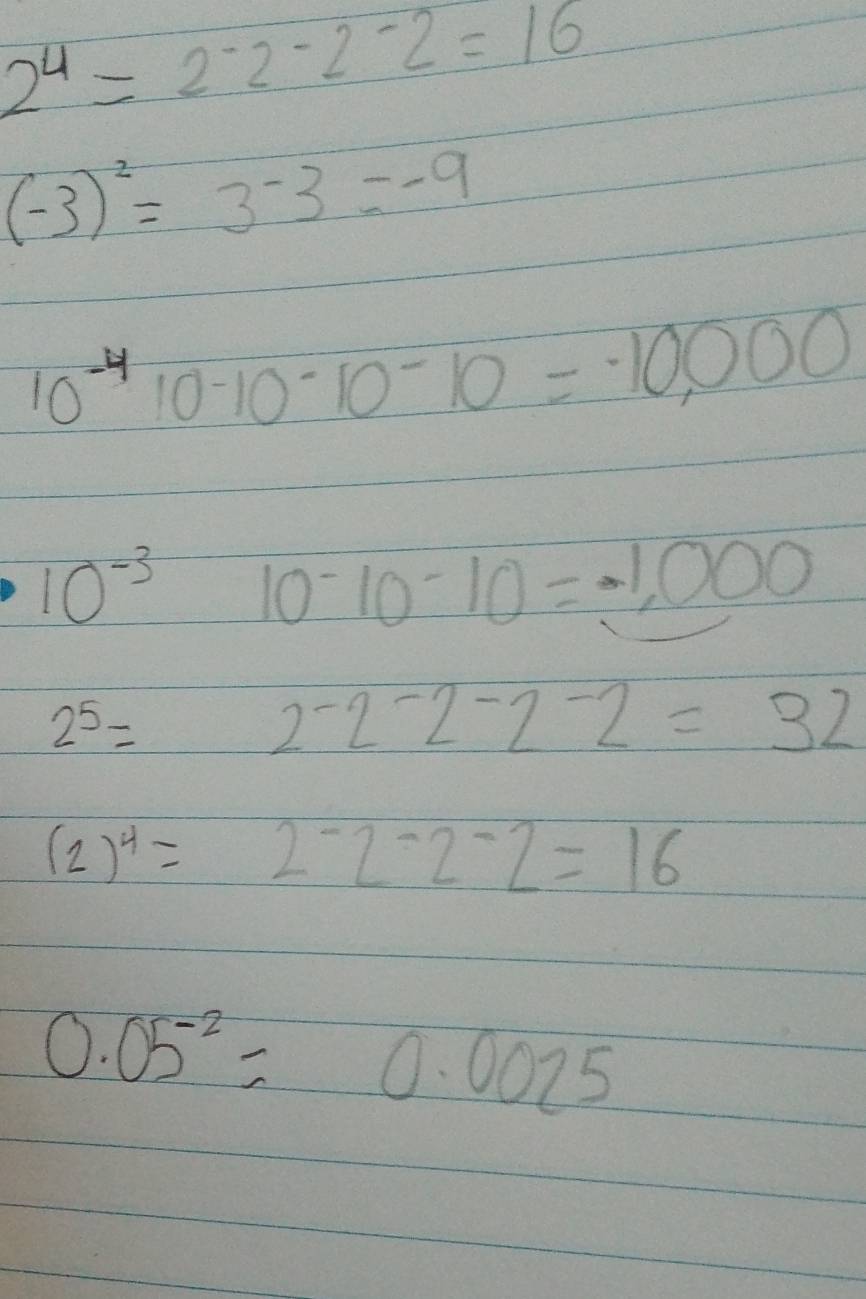 2⁴ = 2-2-2-2 = 16
(-3)² = 3-3 = -9
10⁻⁴ 10-10-10-10 = -10,000
10⁻³ 10-10-10 = -1,000
2⁵ = 2-2-2-2-2 = 32
(2)⁴ = 2-2-2-2 = 16
0.05⁻² = 0.0025